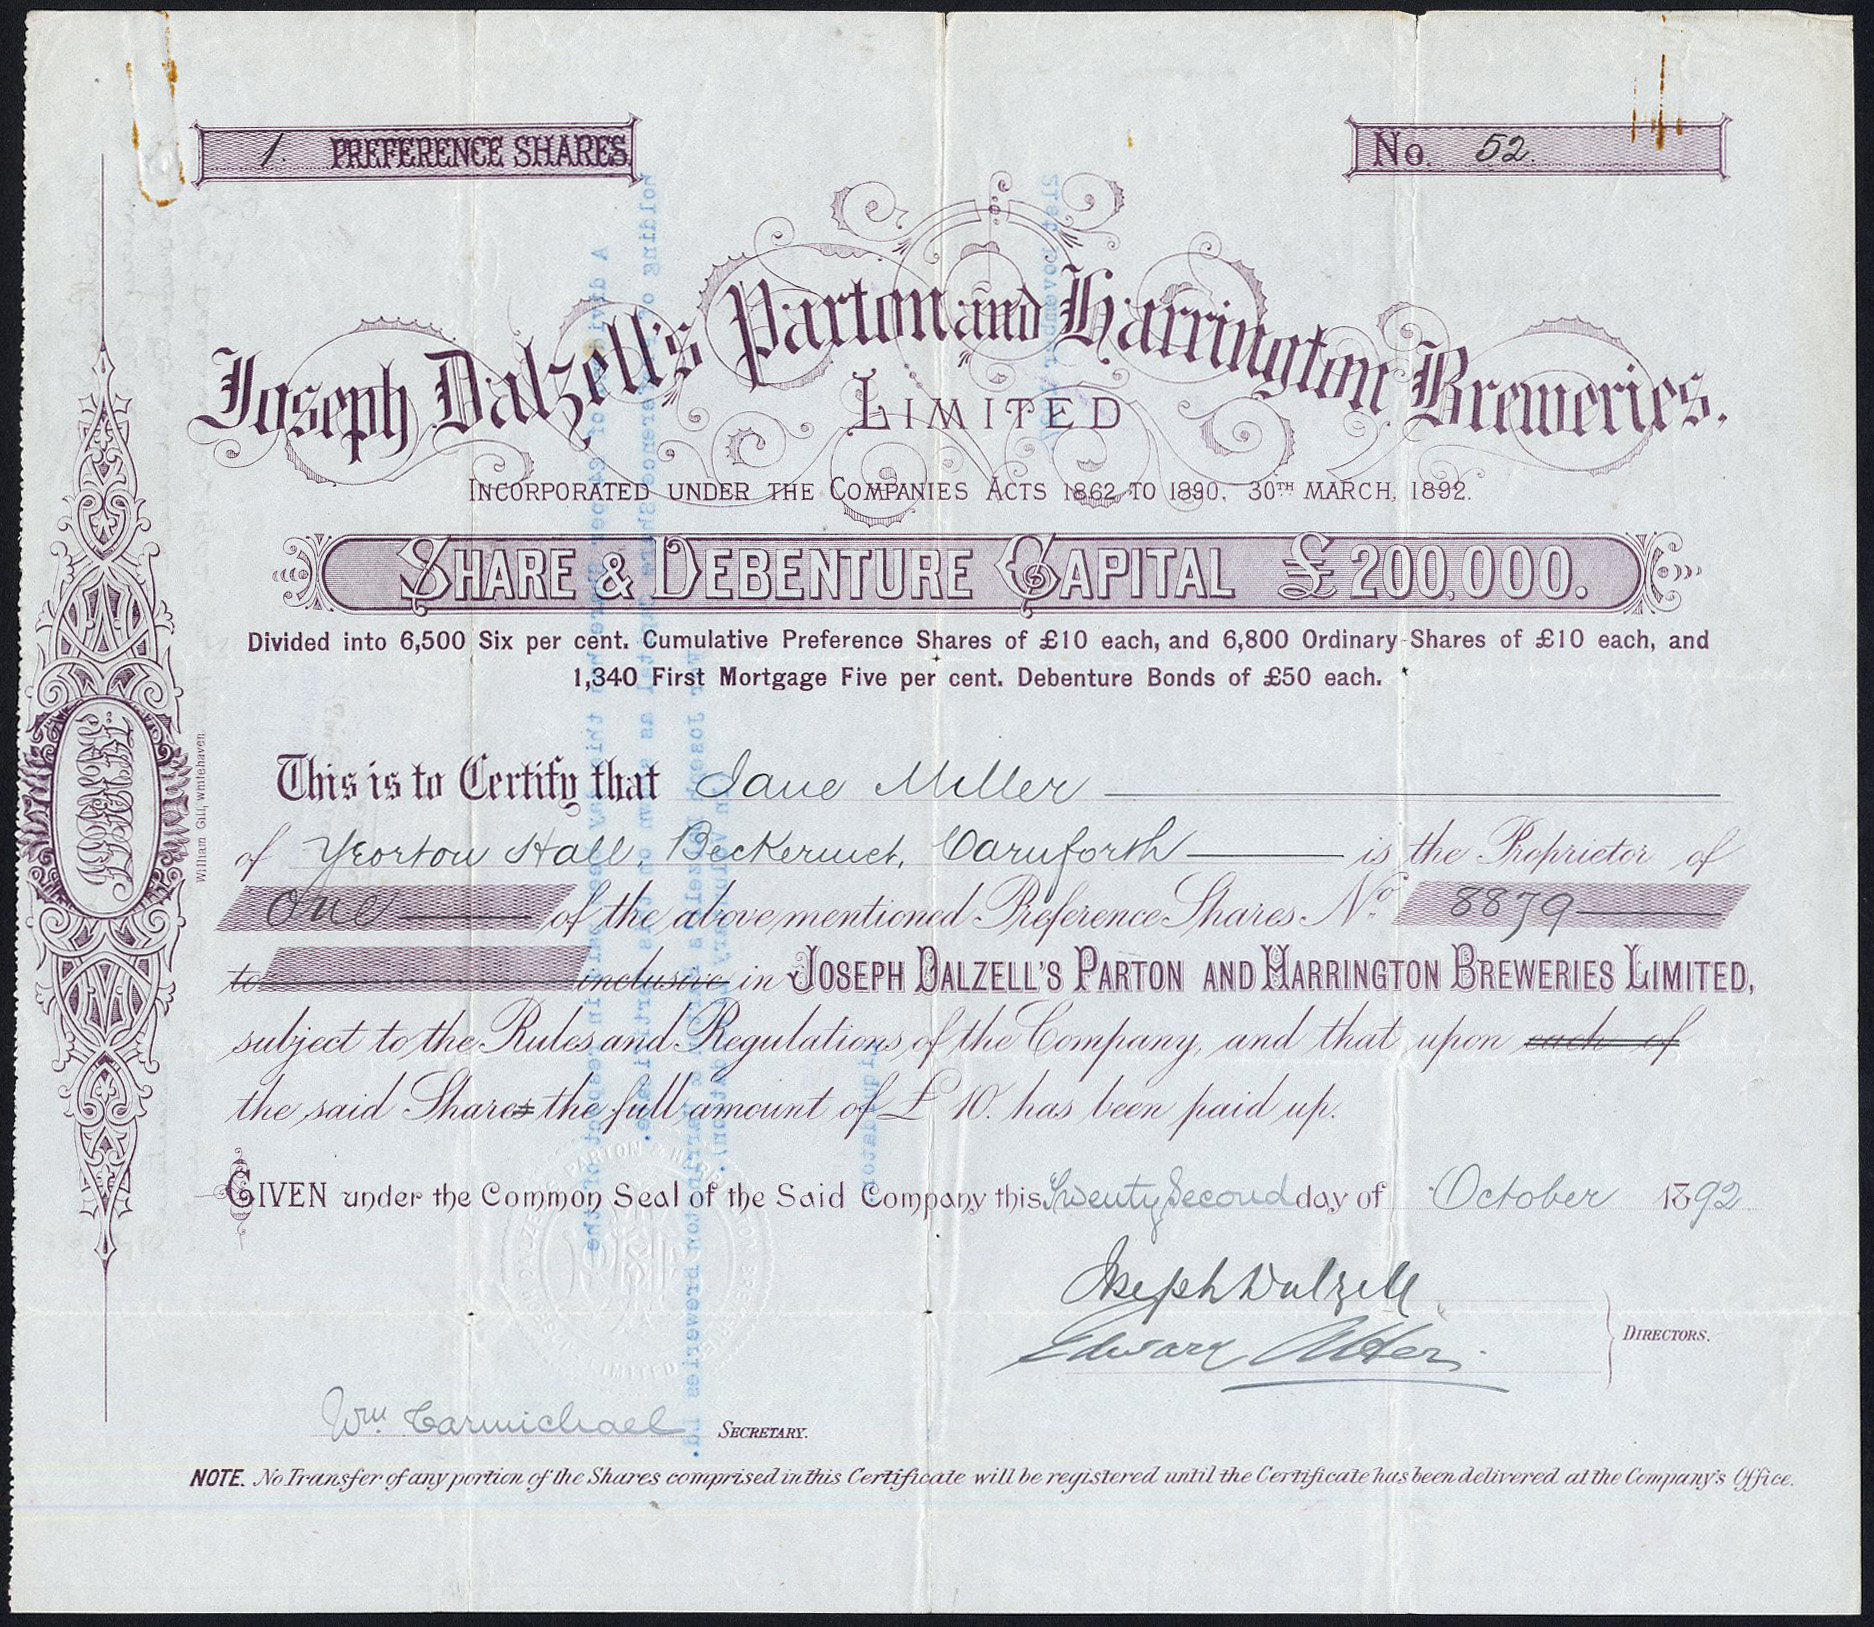 1. PREFERENCE SHARES.
No. 52.
Joseph Dalzell's Parton and Harrington Breweries.
LIMITED
INCORPORATED UNDER THE COMPANIES ACTS 1862 TO 1890, 30TH MARCH, 1892.
SHARE & DEBENTURE CAPITAL £200,000.
Divided into 6,500 Six per cent. Cumulative Preference Shares of £10 each, and 6,800 Ordinary Shares of £10 each, and
1,340 First Mortgage Five per cent. Debenture Bonds of £50 each.
This is to Certify that Jane Miller
of Yeorton Hall Beckermet, Carnforth is the Proprietor of
One of the above mentioned Preference Shares No. 8879
to inclusive in JOSEPH DALZELL'S PARTON AND HARRINGTON BREWERIES LIMITED,
subject to the Rules and Regulations of the Company, and that upon each of
the said Shares the full amount of £10. has been paid up.
GIVEN under the Common Seal of the Said Company this Twenty Second day of October 1892
Joseph Dalzell
Edward
DIRECTORS.
Wm. Carmichael SECRETARY.
NOTE. No Transfer of any portion of the Shares comprised in this Certificate will be registered until the Certificate has been delivered at the Company's Office.
William Gill, Whitehaven.